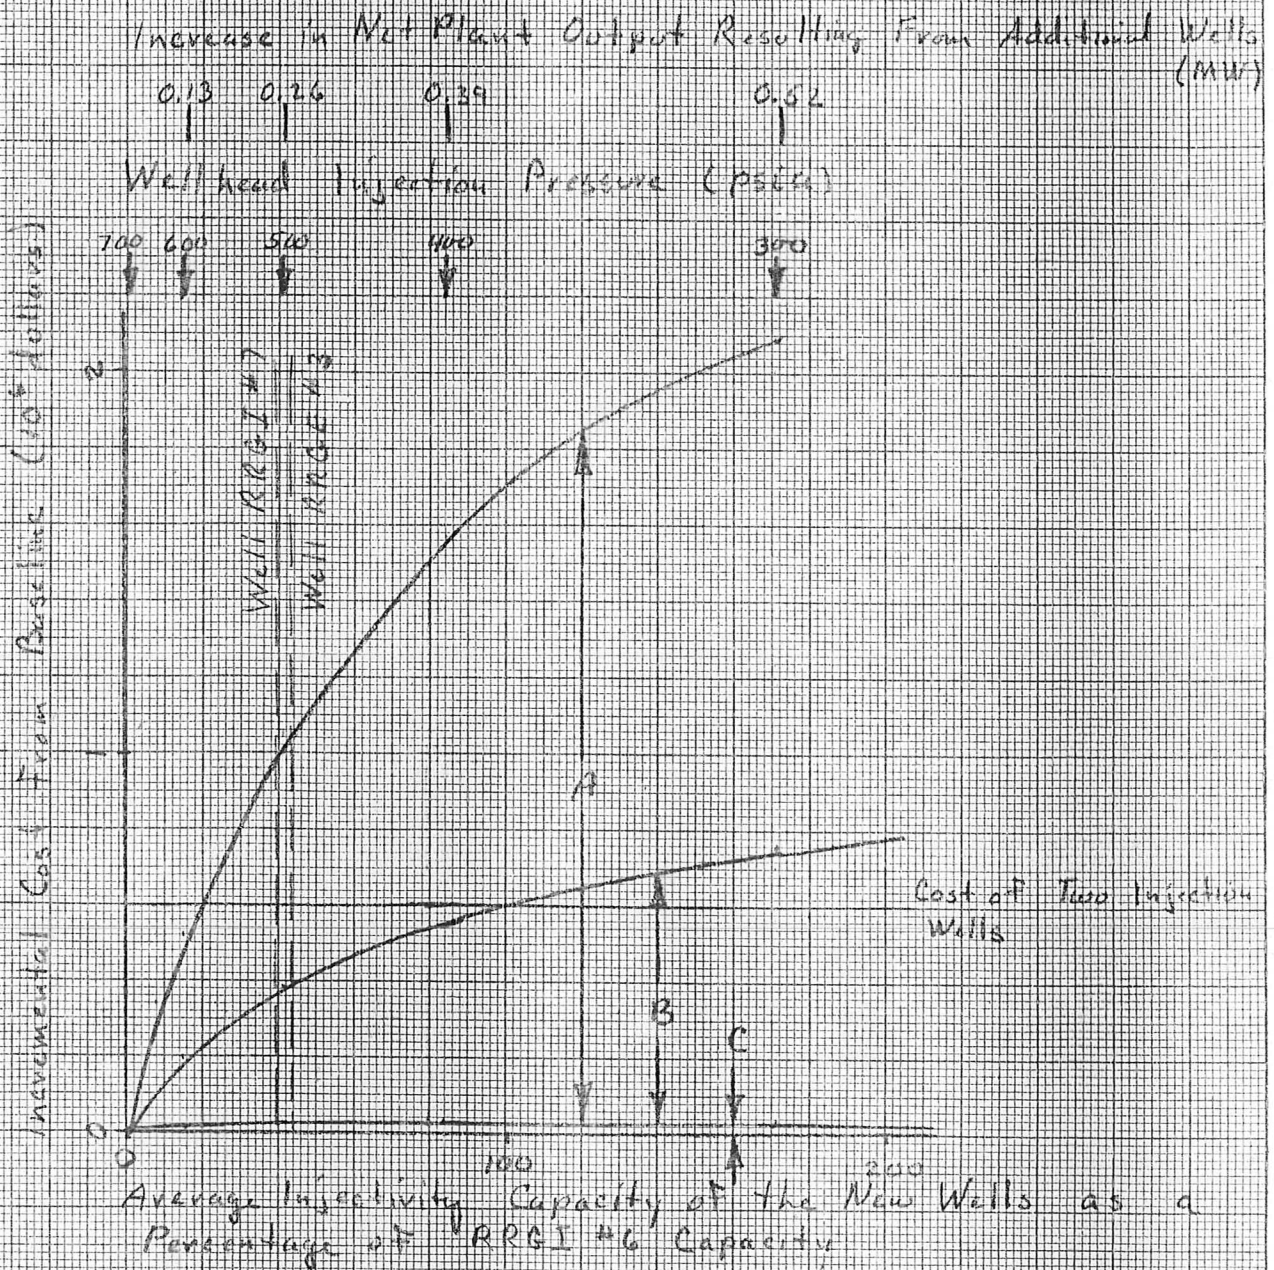 Increase in Net Plant Output Resulting From Additional Wells
(MW)
0.13 0.26 0.39 0.52
Wellhead Injection Pressure (psia)
700 600 500 400 300
Incremental Cost From Baseline (10⁶ dollars)
2
1
0
Well RRGI #7
Well RRGE #3
A
B
C
Cost of Two Injection
Wells
0 100 200
Average Injectivity Capacity of the New Wells as a
Percentage of RRGI #6 Capacity